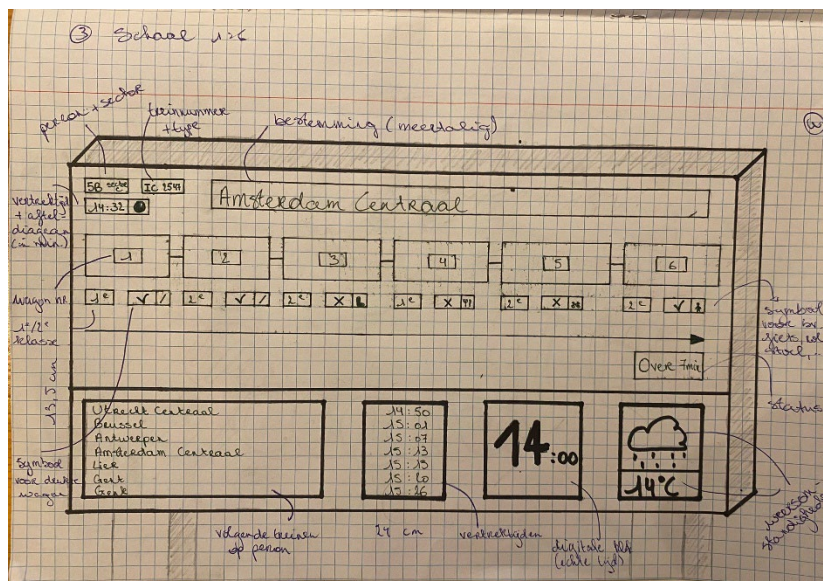 ③ Schaal 1:6
perron + sector
treinnummer
+ type
bestemming (meertalig)
5B sector
IC 2547
14:32
Amsterdam Centraal
vertrektijd
+ aftel-
diagram
(in min.)
1
2
3
4
5
6
1e √ / 2e √ / 2e X 1e X 2e X 2e √
wagon nr.
1e/2e
klasse
symbool
voor bv.
fiets, rol
stoel, ..
Over 7min
status
13,5 cm
Utrecht Centraal
Brussel
Antwerpen
Amsterdam Centraal
Lier
Gent
Genk
14:50
15:01
15:07
15:13
15:15
15:20
15:26
14:00
14°C
symbool
voor drukte
wagon
volgende treinen
op perron
24 cm
vertrektijden
digitale klok
(echte tijd)
weersom-
standigheden